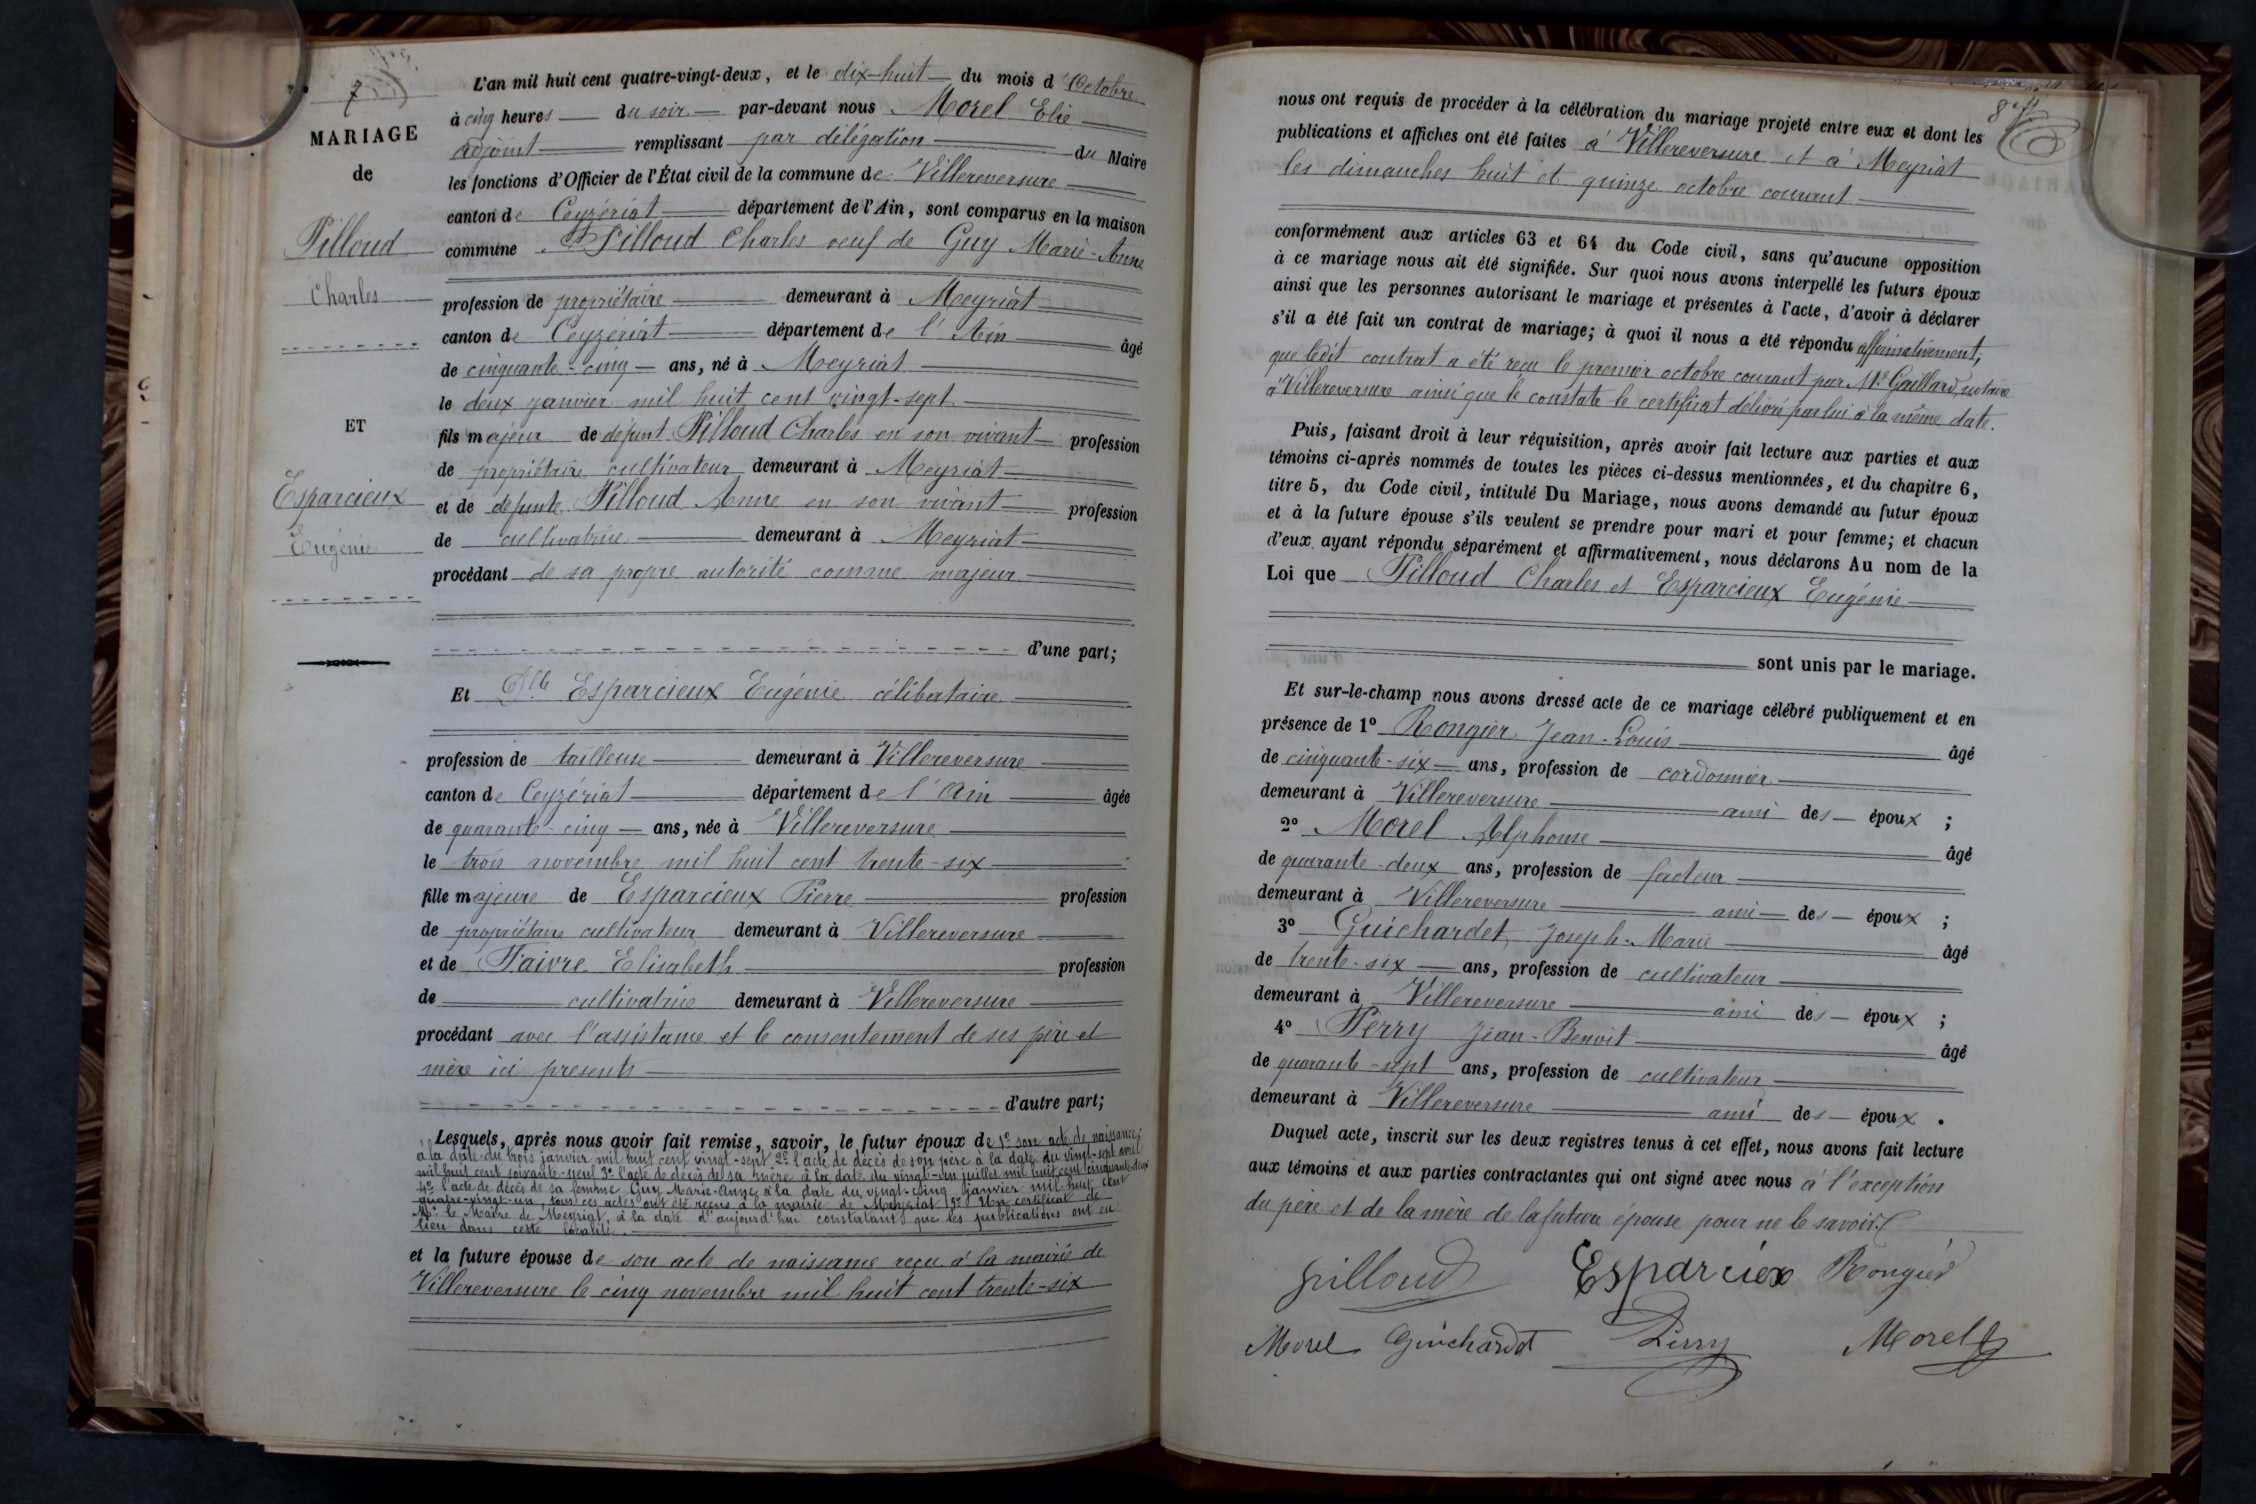 7
MARIAGE
de
Pilloud
Charles
ET
Esparcieux
Eugénie
L'an mil huit cent quatre-vingt-deux, et le dix-huit du mois d'Octobre
à cinq heures du soir par-devant nous Morel Elie
adjoint remplissant par délégation du Maire
les fonctions d'Officier de l'État civil de la commune de Villereversure
canton de Ceyzériat département de l'Ain, sont comparus en la maison
commune Pilloud Charles veuf de Guy Marie-Anne
profession de propriétaire demeurant à Meyriat
canton de Ceyzériat département de l'Ain âgé
de cinquante-cinq ans, né à Meyriat
le deux janvier mil huit cent vingt-sept
fils majeur de défunt Pilloud Charles en son vivant profession
de propriétaire cultivateur demeurant à Meyriat
et de défunte Pilloud Anne en son vivant profession
de cultivatrice demeurant à Meyriat
procédant de sa propre autorité comme majeur
d'une part;
Et Dlle Esparcieux Eugénie célibataire
profession de tailleuse demeurant à Villereversure
canton de Ceyzériat département de l'Ain âgée
de quarante-cinq ans, née à Villereversure
le trois novembre mil huit cent trente-six
fille majeure de Esparcieux Pierre profession
de propriétaire cultivateur demeurant à Villereversure
et de Faivre Elisabeth profession
de cultivatrice demeurant à Villereversure
procédant avec l'assistance et le consentement de ses père et
mère ici présents
d'autre part;
Lesquels, après nous avoir fait remise, savoir, le futur époux de 1º son acte de naissance,
à la date du trois janvier mil huit cent vingt-sept 2º l'acte de décès de son père à la date du vingt-sept avril
mil huit cent soixante-neuf 3º l'acte de décès de sa mère à la date du vingt-un juillet mil huit cent cinquante-deux
4º l'acte de décès de sa femme Guy Marie-Anne à la date du vingt-cinq janvier mil huit cent
quatre-vingt-un, tous ces actes ont été reçus à la mairie de Meyriat 5º Un certificat de
Mr le Maire de Meyriat, à la date d'aujourd'hui constatant que les publications ont eu
lieu dans cette localité.
et la future épouse de son acte de naissance reçu à la mairie de
Villereversure le cinq novembre mil huit cent trente-six
nous ont requis de procéder à la célébration du mariage projeté entre eux et dont les
publications et affiches ont été faites à Villereversure et à Meyriat
les dimanches huit et quinze octobre courant
conformément aux articles 63 et 64 du Code civil, sans qu'aucune opposition
à ce mariage nous ait été signifiée. Sur quoi nous avons interpellé les futurs époux
ainsi que les personnes autorisant le mariage et présentes à l'acte, d'avoir à déclarer
s'il a été fait un contrat de mariage; à quoi il nous a été répondu affirmativement;
que ledit contrat a été reçu le premier octobre courant par Me Gaillard, notaire
à Villereversure ainsi que le constate le certificat délivré par lui à la même date.
Puis, faisant droit à leur réquisition, après avoir fait lecture aux parties et aux
témoins ci-après nommés de toutes les pièces ci-dessus mentionnées, et du chapitre 6,
titre 5, du Code civil, intitulé Du Mariage, nous avons demandé au futur époux
et à la future épouse s'ils veulent se prendre pour mari et pour femme; et chacun
d'eux ayant répondu séparément et affirmativement, nous déclarons Au nom de la
Loi que Pilloud Charles et Esparcieux Eugénie
sont unis par le mariage.
Et sur-le-champ nous avons dressé acte de ce mariage célébré publiquement et en
présence de 1º Rongier Jean-Louis âgé
de cinquante-six ans, profession de cordonnier
demeurant à Villereversure ami des époux ;
2º Morel Alphonse âgé
de quarante-deux ans, profession de facteur
demeurant à Villereversure ami des époux ;
3º Guichardet Joseph-Marie âgé
de trente-six ans, profession de cultivateur
demeurant à Villereversure ami des époux ;
4º Perry Jean-Benoit âgé
de quarante-sept ans, profession de cultivateur
demeurant à Villereversure ami des époux.
Duquel acte, inscrit sur les deux registres tenus à cet effet, nous avons fait lecture
aux témoins et aux parties contractantes qui ont signé avec nous à l'exception
du père et de la mère de la future épouse pour ne le savoir.
pilloud Esparciex Rongier
Morel Guichardet Perry Morel